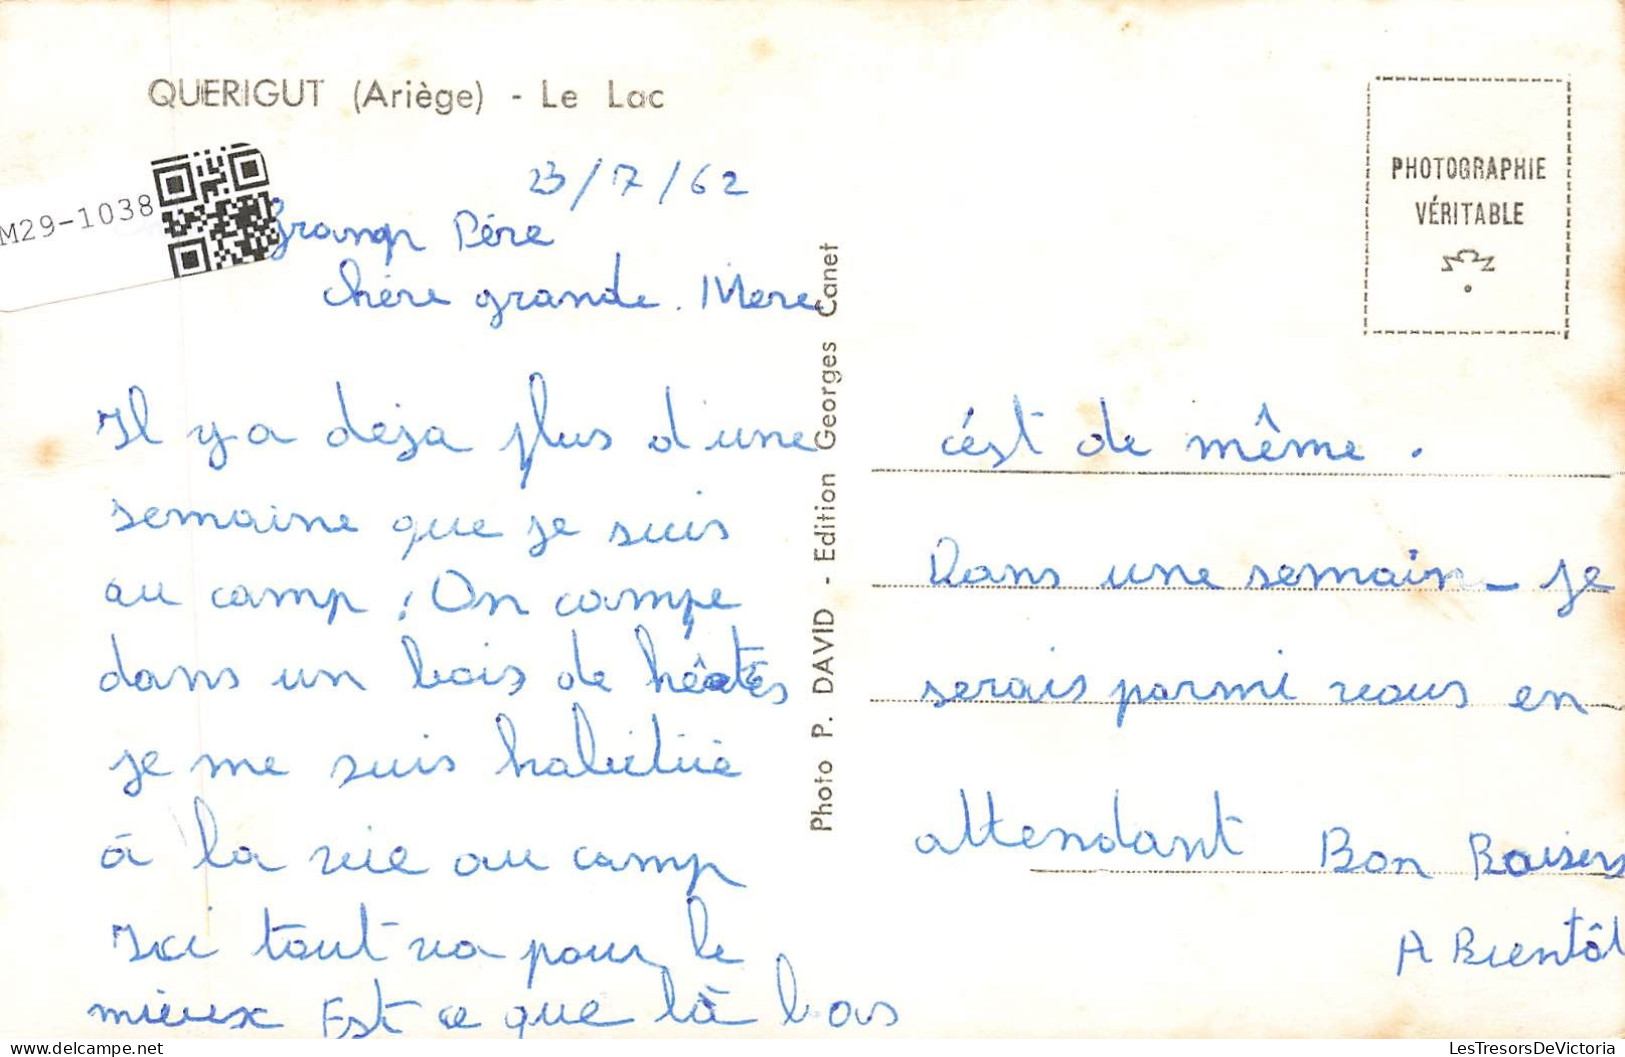 QUERIGUT (Ariège) - Le Lac
M29-1038
23/7/62
grang Père
chère grande. Mere
Il y a deja plus d'une
semaine que je suis
au camp ! On campe
dans un bois de hêtres
je me suis habitué
à la vie au camp
Ici tout va pour le
mieux Est ce que là bas
Photo P. DAVID - Edition Georges Canet
PHOTOGRAPHIE
VÉRITABLE
c'ést de même.
Dans une semain- je
serais parmi vous en
attendant Bon Baisers
A Bientôt
LesTresorsDeVictoria